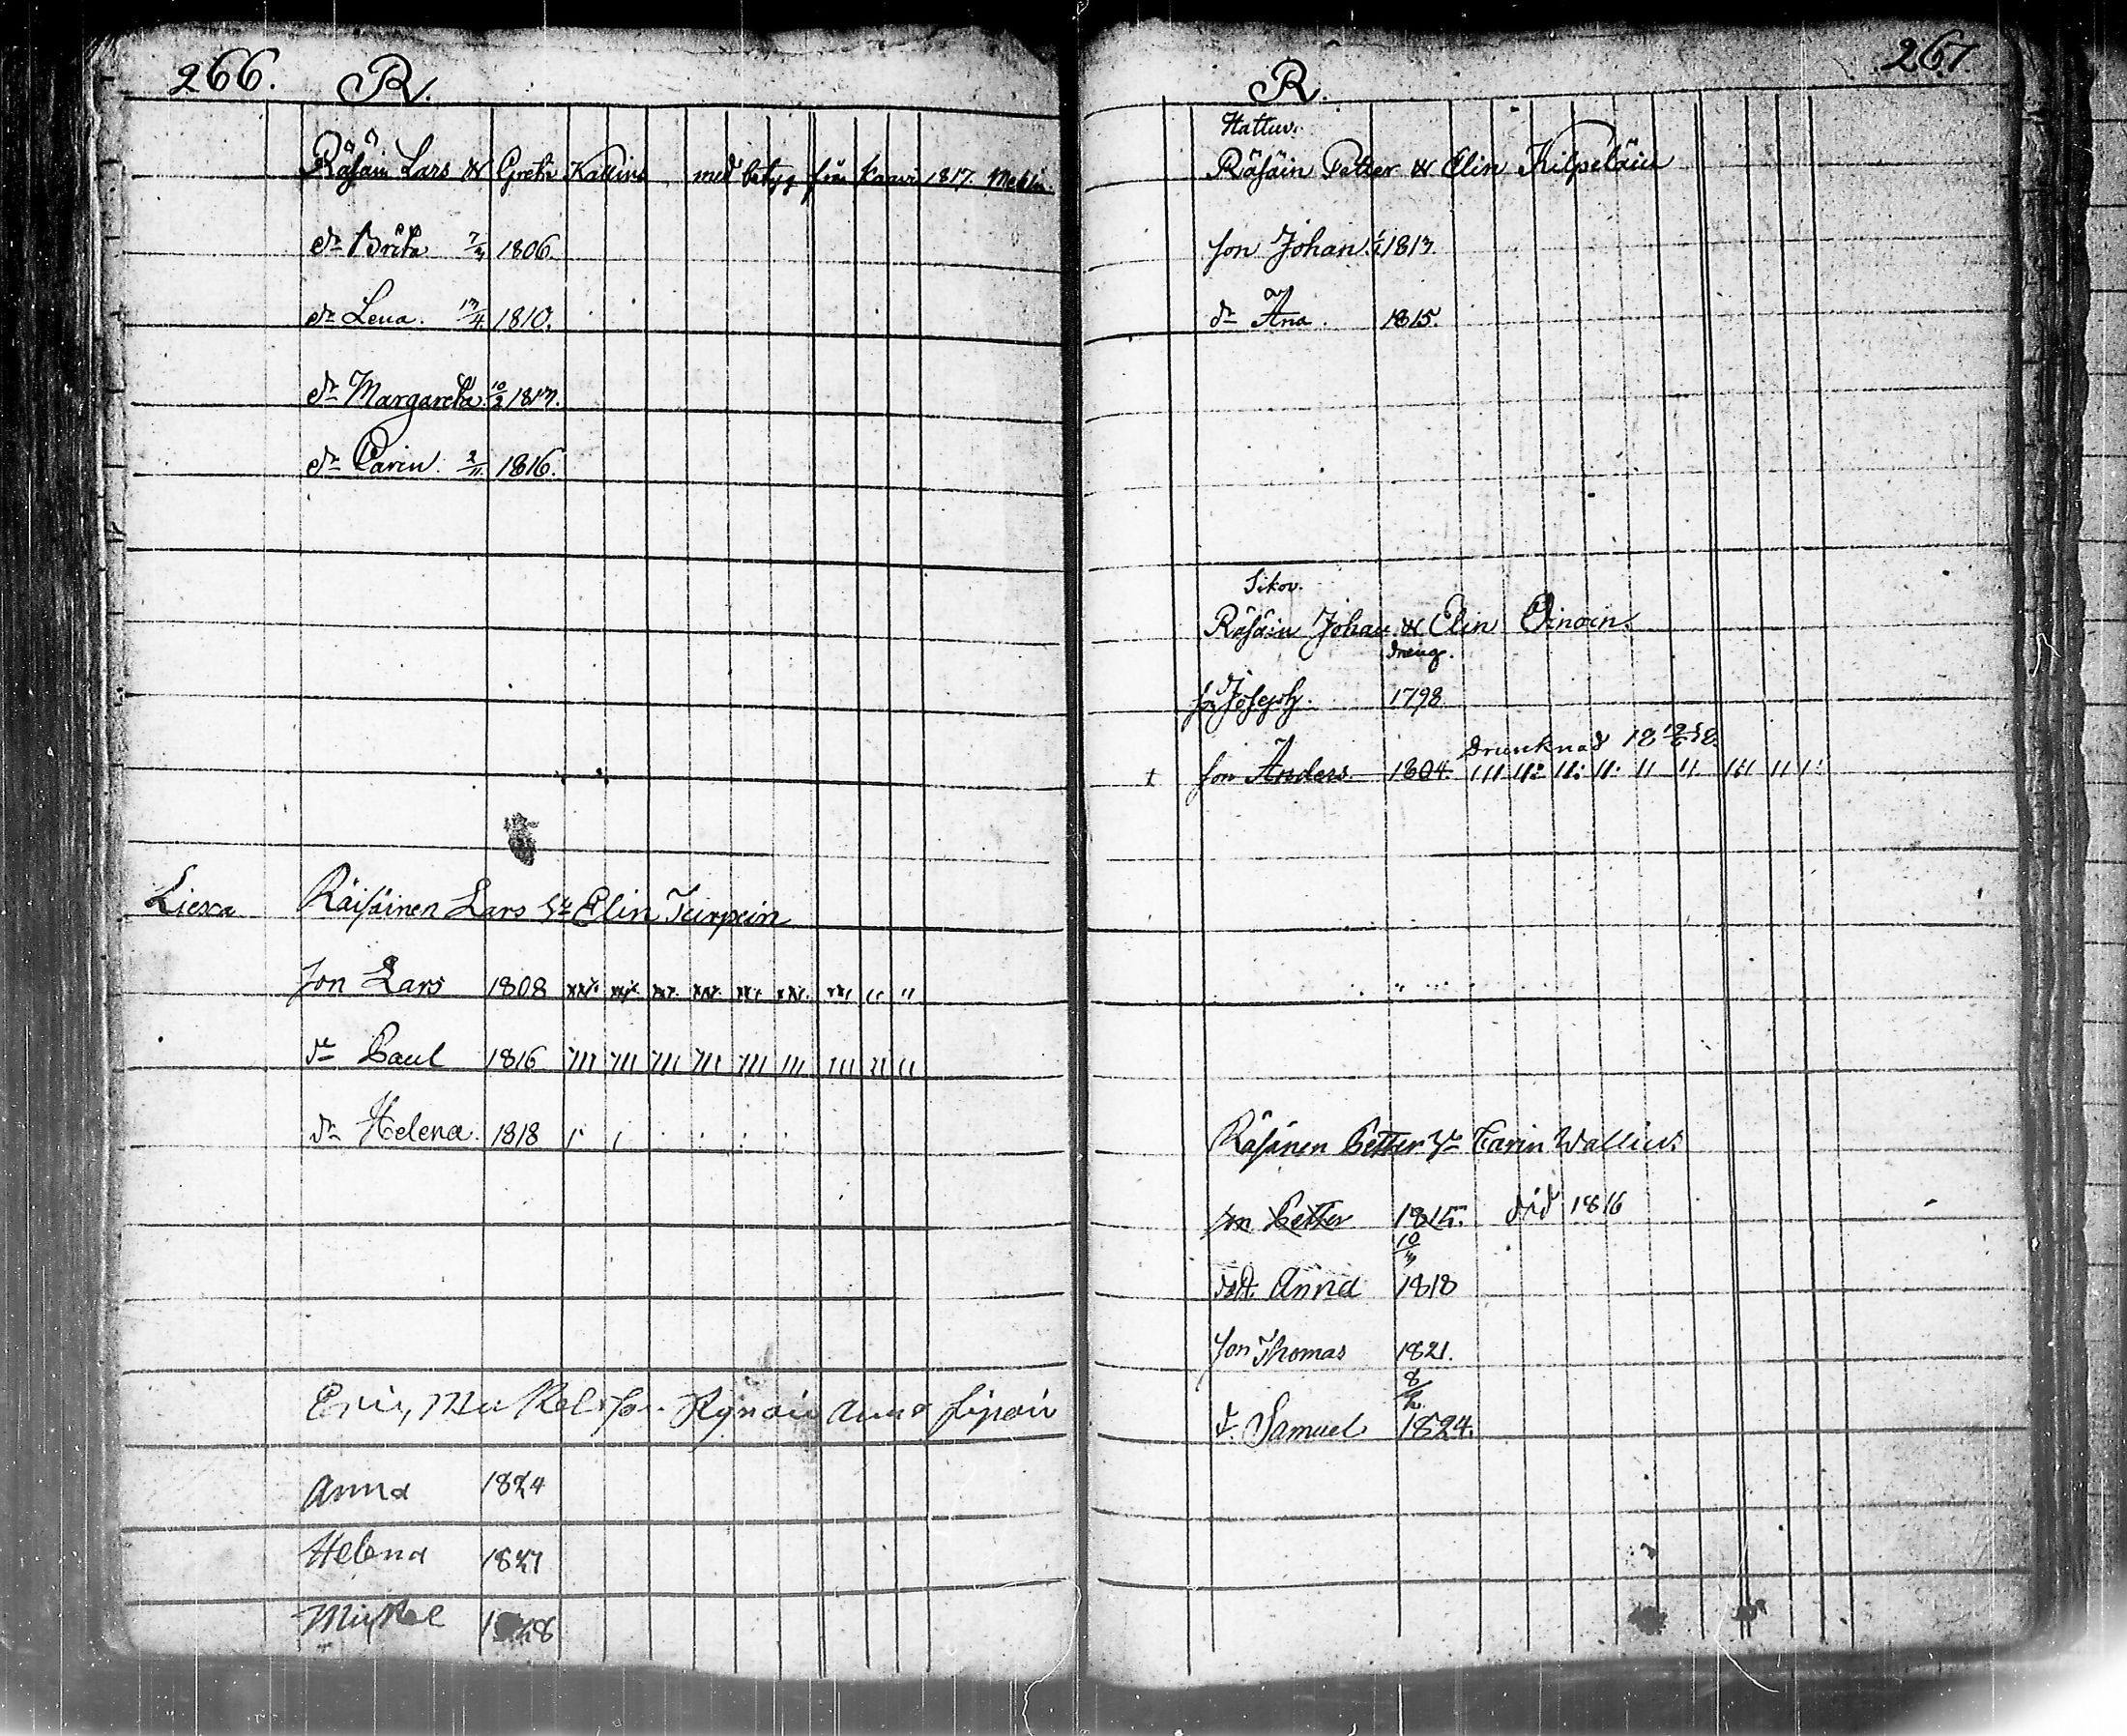 266. R.
Räsäin Lars & Greta Kallius med betyg från Kaavi 1817.
dr Brita 7/3 1806.
dr Lena. 13/4 1810.
dr Margareta. 10/2 1813.
dr Carin. 2/11. 1816.
Liexa Räisäinen Lars hr Elin Turpein
son Lars 1808
dr Paul 1816
dr Helena. 1818
Eric Anna
Anna 1824
Helena 1827
Mickel
R. 267.
Hattuv.
Räsäin Petter & Elin Kilpeläin
son Johan. 1813.
dr Ana. 1815.
Sikov.
Räsäin Johan & Elin Oinoin.
dräng.
son Joseph. 1798
drunknad 18 12/6 18.
† son Anders 1804.
Räsänen Petter hr Carin Wallius
son Petter 1815. död 1816
10/3
dott. Anna 1818
son Thomas 1821.
8/2.
d. Samuel 1824.